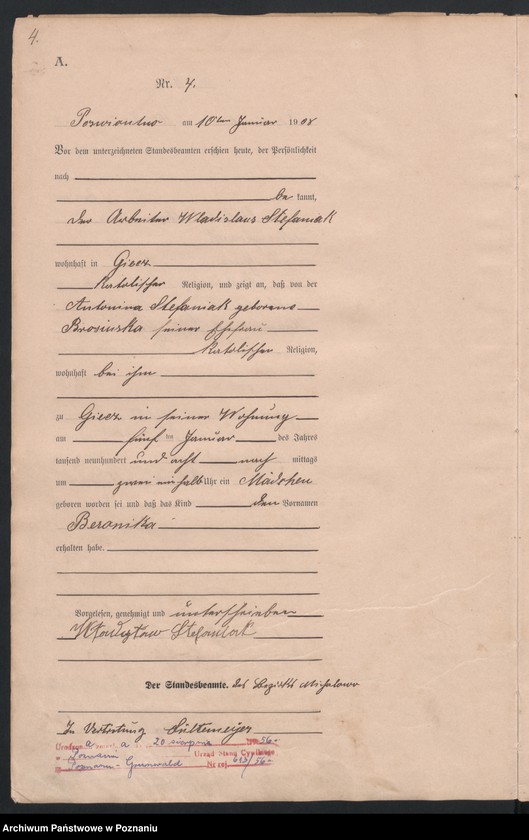 4.
A.
Nr. 4.
am 10ten Januar 1908
Vor dem unterzeichneten Standesbeamten erschien heute, der Persönlichkeit
nach
be kannt,
der Arbeiter Wladislaus Stefaniak
wohnhaft in Giecz
katolischer Religion, und zeigt an, daß von der
Antonina Stefaniak geborene
Brosinska seiner Ehefrau
katolischer Religion,
wohnhaft bei ihm
zu Giecz in seiner Wohnung
am fünf ten Januar des Jahres
tausend neunhundert und acht nach mittags
um zwei einhalb Uhr ein Mädchen
geboren worden sei und daß das Kind den Vornamen
Beronika
erhalten habe.
Vorgelesen, genehmigt und unterschrieben
Władysław Stefaniak
Der Standesbeamte. des Bezirks Michalowo
In Vertretung
a 20 sierpnia 56
Poznaniu Urząd Stanu Cywilnego
Poznań-Grunwald Nr rej. 613/56
Archiwum Państwowe w Poznaniu